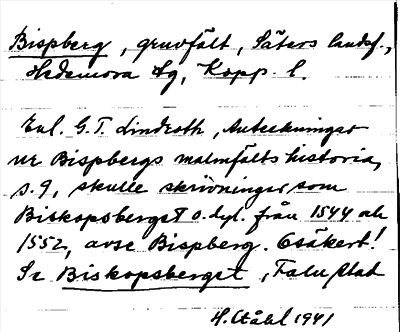 Bispberg, gruvfält, Säters landsf.,
Hedemora tg, Kopp. l.
Enl. G.T. Lindroth, Anteckningar
ur Bispbergs malmfälts historia,
s. 9, skulle skrivningar som
Biskopsberget o.dyl. från 1544 och
1552, avse Bispberg. Osäkert!
Se Biskopsberget, Falu stad
H. Ståhl 1941